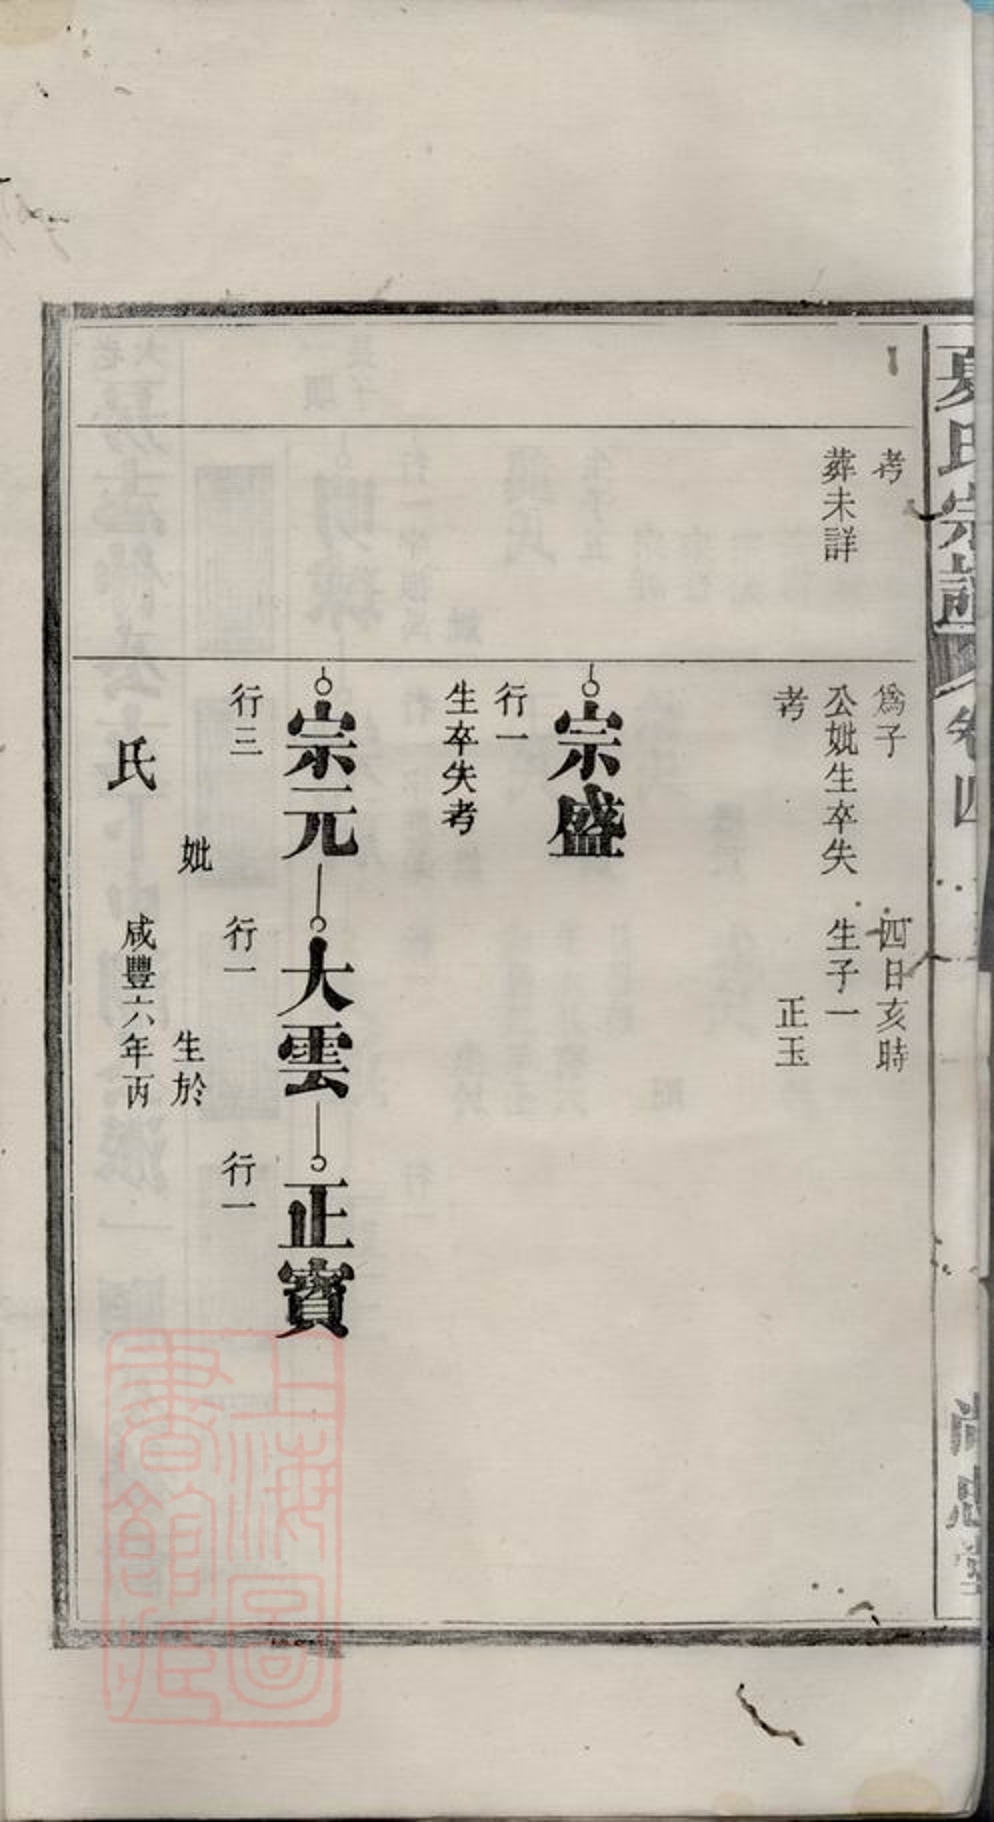 夏氏宗譜
卷四
尚忠堂
考
葬未詳
為子
公妣生卒失
考
四日亥時
生子一
正玉
宗盛
行一
生卒失考
宗元
大雲
正寶
行三
行一
行一
妣
氏
生於
咸豐六年丙
上海圖
書館藏